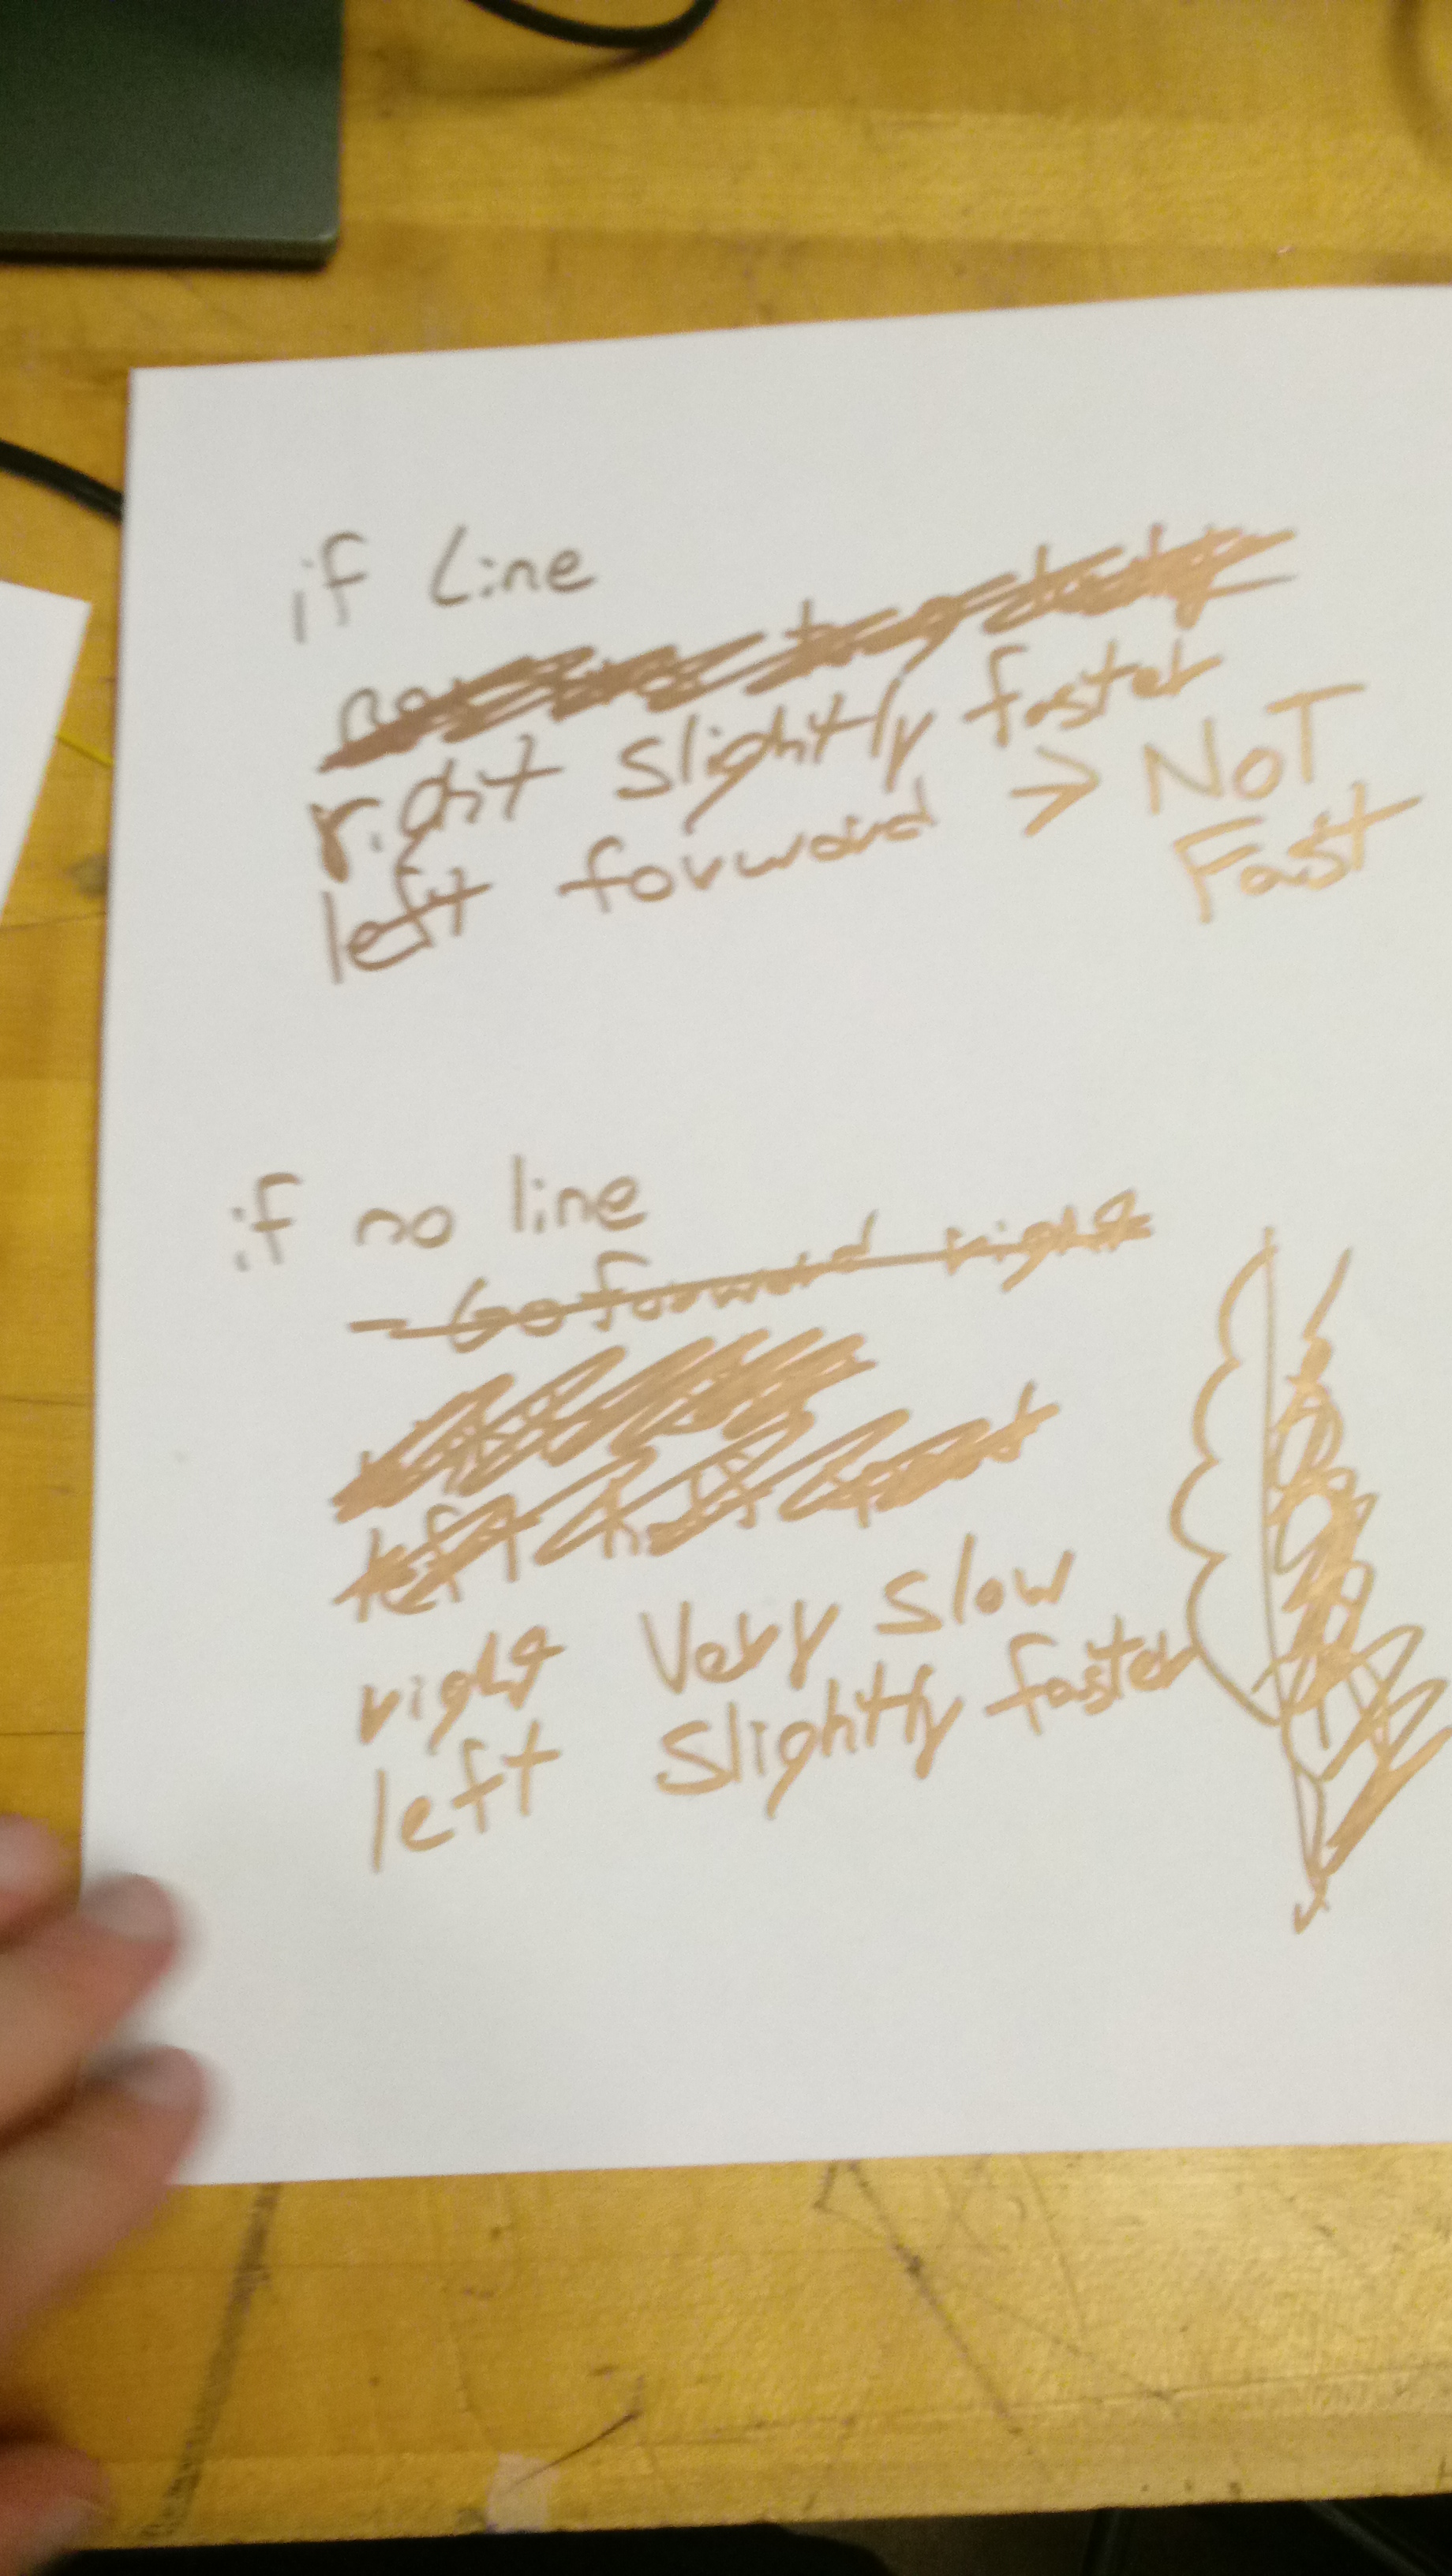 if Line
right slightly faster
left forward > NOT
Fast
if no line
- Go forward right
left half
right Very slow
left slightly faster